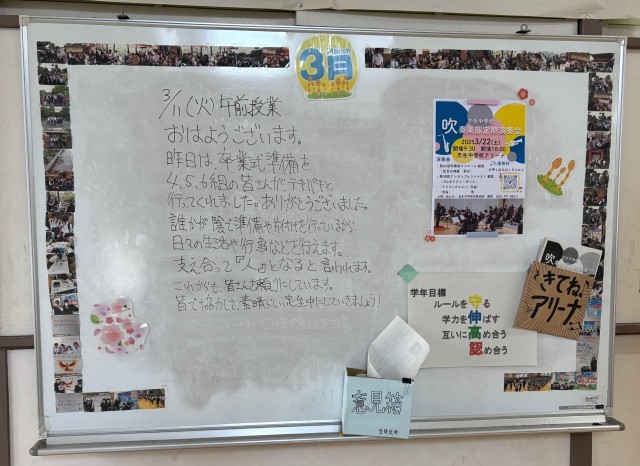 March
3月
3/11(火)午前授業
おはようございます。
昨日は卒業式準備を
4,5,6組の皆さんがテキパキと
行ってくれました。ありがとうございました。
誰かが陰で準備や片付けを行っているから
日々の生活や行事などを行えます。
支え合って『人』となると言われます。
これからも、皆さんを頼りにしています。
皆で協力して、素晴らしい志生中にしていきましょう!
志生中学校
吹奏楽部定期演奏会
2025 3/22(土)
開場9:30 開演10:00
志生中学校アリーナ
入場無料
吹
きてね
アリーナ
学年目標
ルールを守る
学力を伸ばす
互いに高め合う
認め合う
意見箱